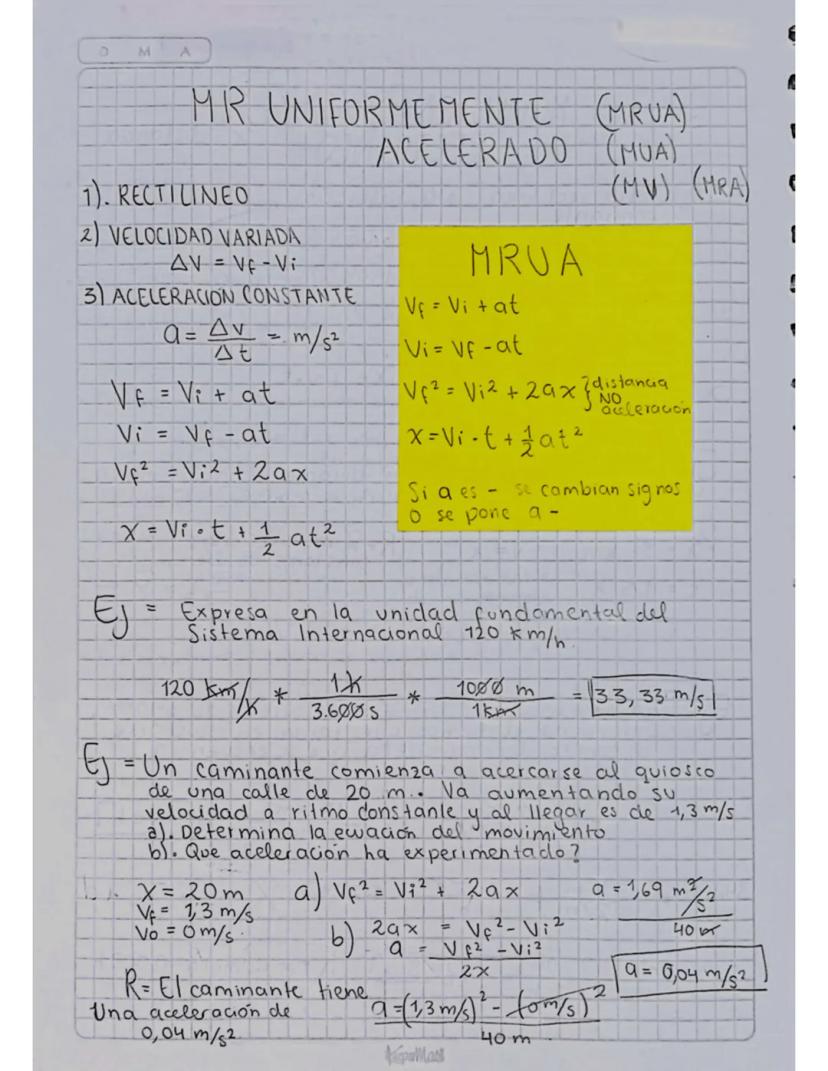 D M A
MR UNIFORMEMENTE (MRUA)
ACELERADO (MUA)
(MV) (MRA)
1). RECTILINEO
2) VELOCIDAD VARIADA
ΔV = Vf - Vi
3) ACELERACION CONSTANTE
a = Δv/Δt = m/s²
Vf = Vi + at
Vi = Vf - at
Vf² = Vi² + 2ax
x = Vi · t + 1/2 at²
MRUA
Vf = Vi + at
Vi = Vf - at
Vf² = Vi² + 2ax } distancia
NO
aceleración
x = Vi · t + 1/2 at²
Si a es - se cambian signos
O se pone a -
Ej = Expresa en la unidad fundamental del
Sistema Internacional 120 km/h.
120 km/h * 1h/3.600 s * 1000 m/1km = 33,33 m/s
Ej = Un caminante comienza a acercarse al quiosco
de una calle de 20 m. Va aumentando su
velocidad a ritmo constante y al llegar es de 1,3 m/s
a). Determina la ecuación del movimiento
b). Que aceleración ha experimentado?
x = 20 m
Vf = 1,3 m/s
Vo = 0 m/s.
a) Vf² = Vi² + 2ax
b) 2ax = Vf² - Vi²
a = Vf² - Vi²/2x
a = (1,3 m/s)² - (0 m/s)²/40 m
a = 1,69 m²/s²/40 m
a = 0,04 m/s²
R = El caminante tiene
Una aceleración de
0,04 m/s².